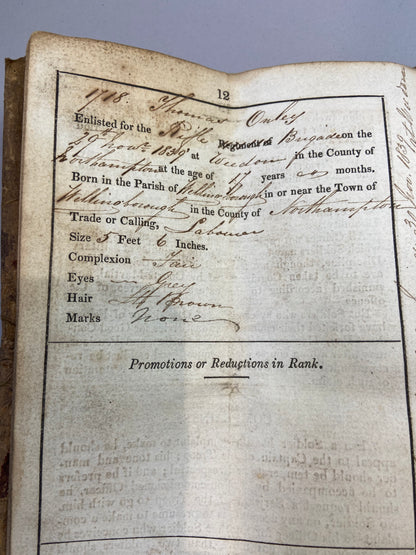 12
1718. Thomas Oxley
Enlisted for the Rifle Brigade on the
29th Novr. 1839 at Weedon in the County of
Northampton at the age of 17 years months.
Born in the Parish of Wellingborough in or near the Town of
Wellingborough in the County of Northampton
Trade or Calling, Labourer
Size 5 Feet 6 Inches.
Complexion Fair
Eyes — Grey
Hair Lt Brown
Marks None
Promotions or Reductions in Rank.